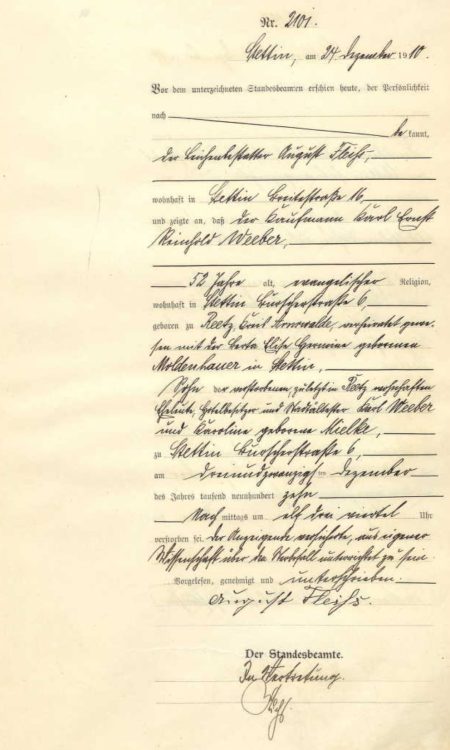 Nr. 2101.
Stettin, am 24 Dezember 1910.
Vor dem unterzeichneten Standesbeamten erschien heute, der Persönlichkeit
nach
bekannt,
der Leichenbestatter August Fleihs,
wohnhaft in Stettin Breitestraße 16,
und zeigte an, daß der Kaufmann Karl Ernst
Reinhold Weeber,
52 Jahre alt, evangelischer Religion,
wohnhaft in Stettin Burscherstraße 6,
geboren zu Reetz, Kreis Arnswalde, verheiratet gewe-
sen mit der Berta Elise Hermine geborenen
Moldenhauer in Stettin,
Sohn der verstorbenen, zuletzt in Reetz wohnhaften
Eheleute, Hotelbesitzer und Ratsältester Karl Weeber
und Karoline geborene Mielke,
zu Stettin Burscherstraße 6,
am dreiundzwanzigsten Dezember
des Jahres tausend neunhundert zehn
Nachmittags um elf drei viertel Uhr
verstorben sei. Der Anzeigende versicherte, aus eigener
Wissenschaft über den Sterbefall unterrichtet zu sein.
Vorgelesen, genehmigt und unterschrieben.
August Fleihs.
Der Standesbeamte.
In Vertretung.